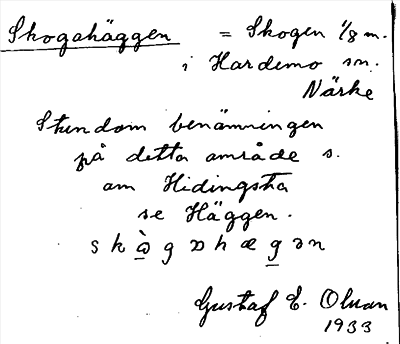 Skogahäggen = Skogen 1/8 m.
i Hardemo sn.
Närke
Stundom benämningen
på detta område s.
om Hidingsta
se Häggen.
s k ɑ̀ g ɒ h æ g ə n
Gustaf E. Olsson
1933